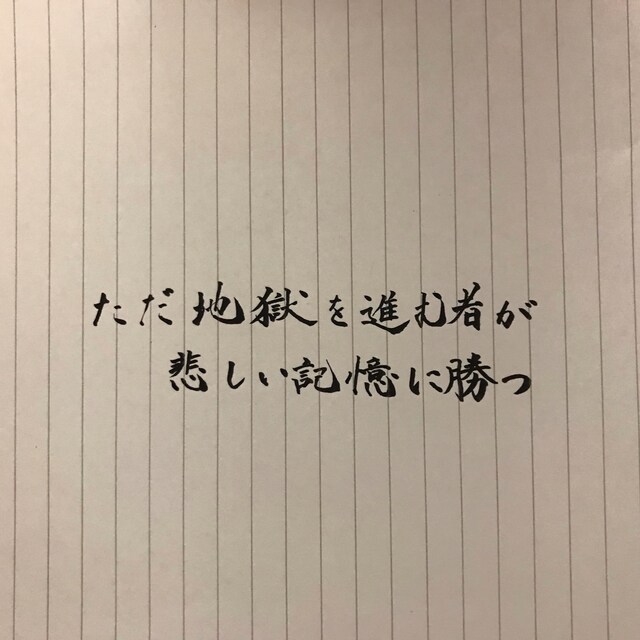 ただ地獄を進む者が
悲しい記憶に勝つ